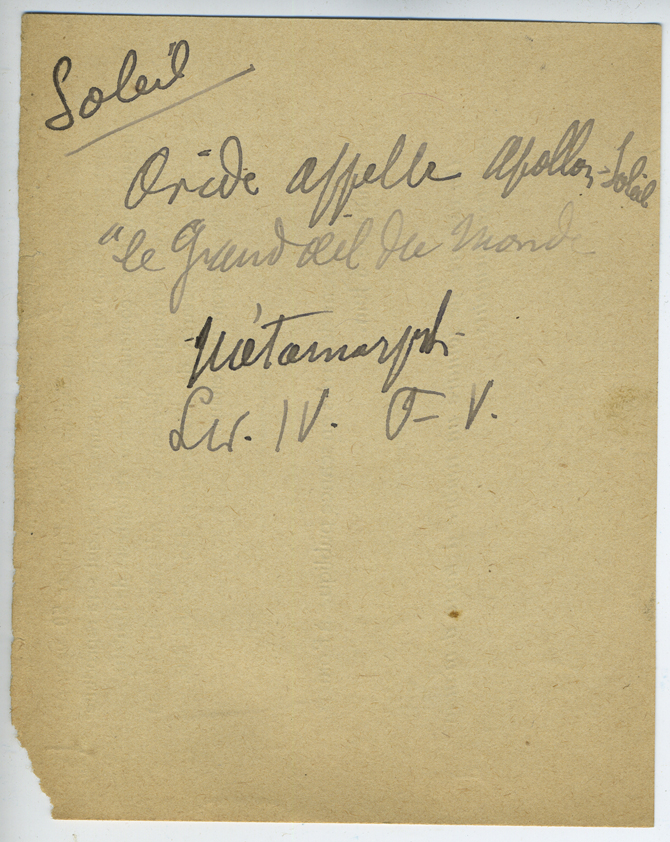 Soleil
Ovide appelle Apollon-Soleil
"le Grand œil du Monde
Métamorph.
Liv. IV. F V.